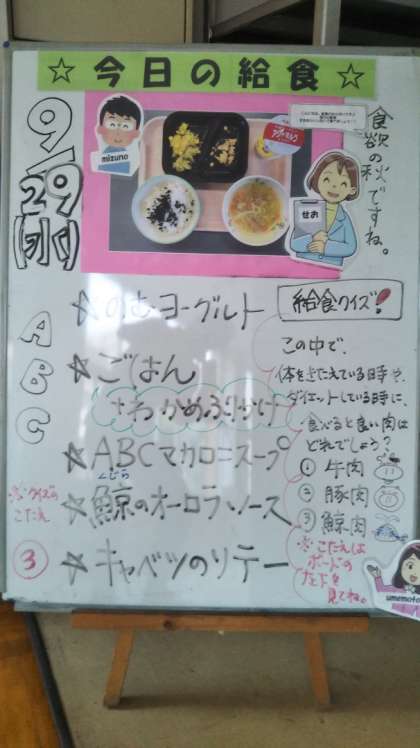 ☆今日の給食☆
9/29(水)
mizuno
せお
食欲の秋ですね。
☆のむヨーグルト
☆ごはん
+わかめふりかけ
☆ABCマカロニスープ
☆鯨のオーロラソース
くじら
☆キャベツのソテー
ABC
給食クイズ!
この中で、
体をきたえている時や、
ダイエットしている時に、
食べると良い肉は
どれでしょう?
① 牛肉
② 豚肉
③ 鯨肉
※こたえは
ボードの
左下を
見てね。
※クイズの
こたえ
③
umemoto